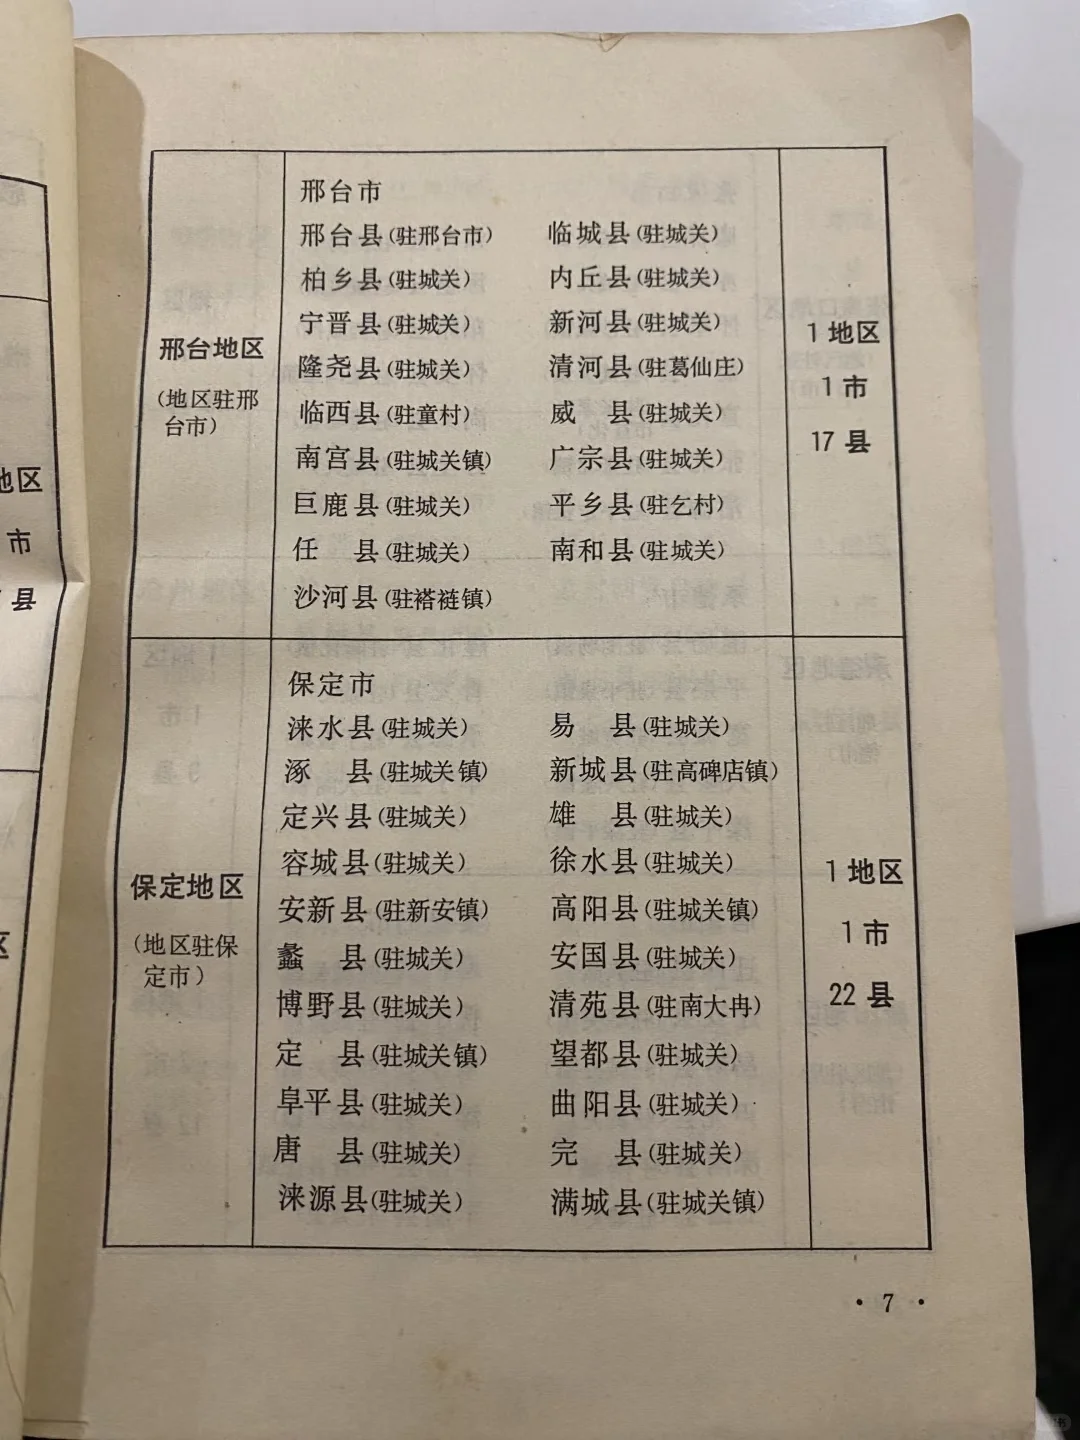 邢台地区
(地区驻邢
台市)
邢台市
邢台县(驻邢台市) 临城县(驻城关)
柏乡县(驻城关) 内丘县(驻城关)
宁晋县(驻城关) 新河县(驻城关)
隆尧县(驻城关) 清河县(驻葛仙庄)
临西县(驻童村) 威 县(驻城关)
南宫县(驻城关镇) 广宗县(驻城关)
巨鹿县(驻城关) 平乡县(驻乞村)
任 县(驻城关) 南和县(驻城关)
沙河县(驻褡裢镇)
1地区
1市
17县
保定地区
(地区驻保
定市)
保定市
涞水县(驻城关) 易 县(驻城关)
涿 县(驻城关镇) 新城县(驻高碑店镇)
定兴县(驻城关) 雄 县(驻城关)
容城县(驻城关) 徐水县(驻城关)
安新县(驻新安镇) 高阳县(驻城关镇)
蠡 县(驻城关) 安国县(驻城关)
博野县(驻城关) 清苑县(驻南大冉)
定 县(驻城关镇) 望都县(驻城关)
阜平县(驻城关) 曲阳县(驻城关)
唐 县(驻城关) 完 县(驻城关)
涞源县(驻城关) 满城县(驻城关镇)
1地区
1市
22县
地区
市
县
区
• 7 •